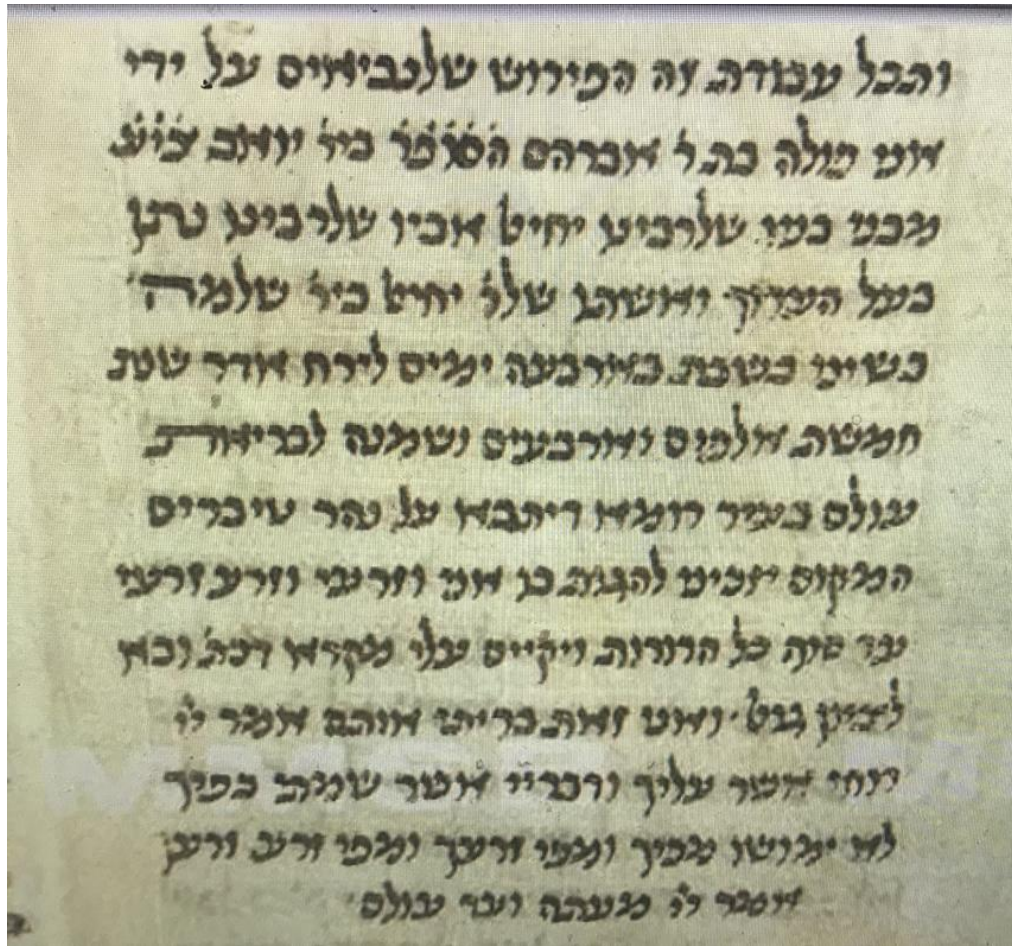 ותכל עבודת זה הפירוש שלנביאים על ידי
אני פולה בת ר' אברהם הסופר ביר' יואב
מבני בניו שלרבינו יחיאל אביו שלרבינו נתן
בעל הערוך ואשתו שלר' יחיאל ביר' שלמה
בשיני בשבת בארבעה ימים לירח אדר שנת
חמשת אלפים וארבעים ושמנה לבריאת
עולם בעיר רומא דיתבא על נהר טיברים
המקום יזכינו להגות בו אני וזרעי וזרע זרעי
עד סוף כל הדורות ויקיים עלי מקרא דכת' ובא
לציון גואל · ואני זאת בריתי אותם אמר יי
רוחי אשר עליך ודבריי אשר שמתי בפיך
לא ימושו מפיך ומפי זרעך ומפי זרע זרעך
אמר יי מעתה ועד עולם